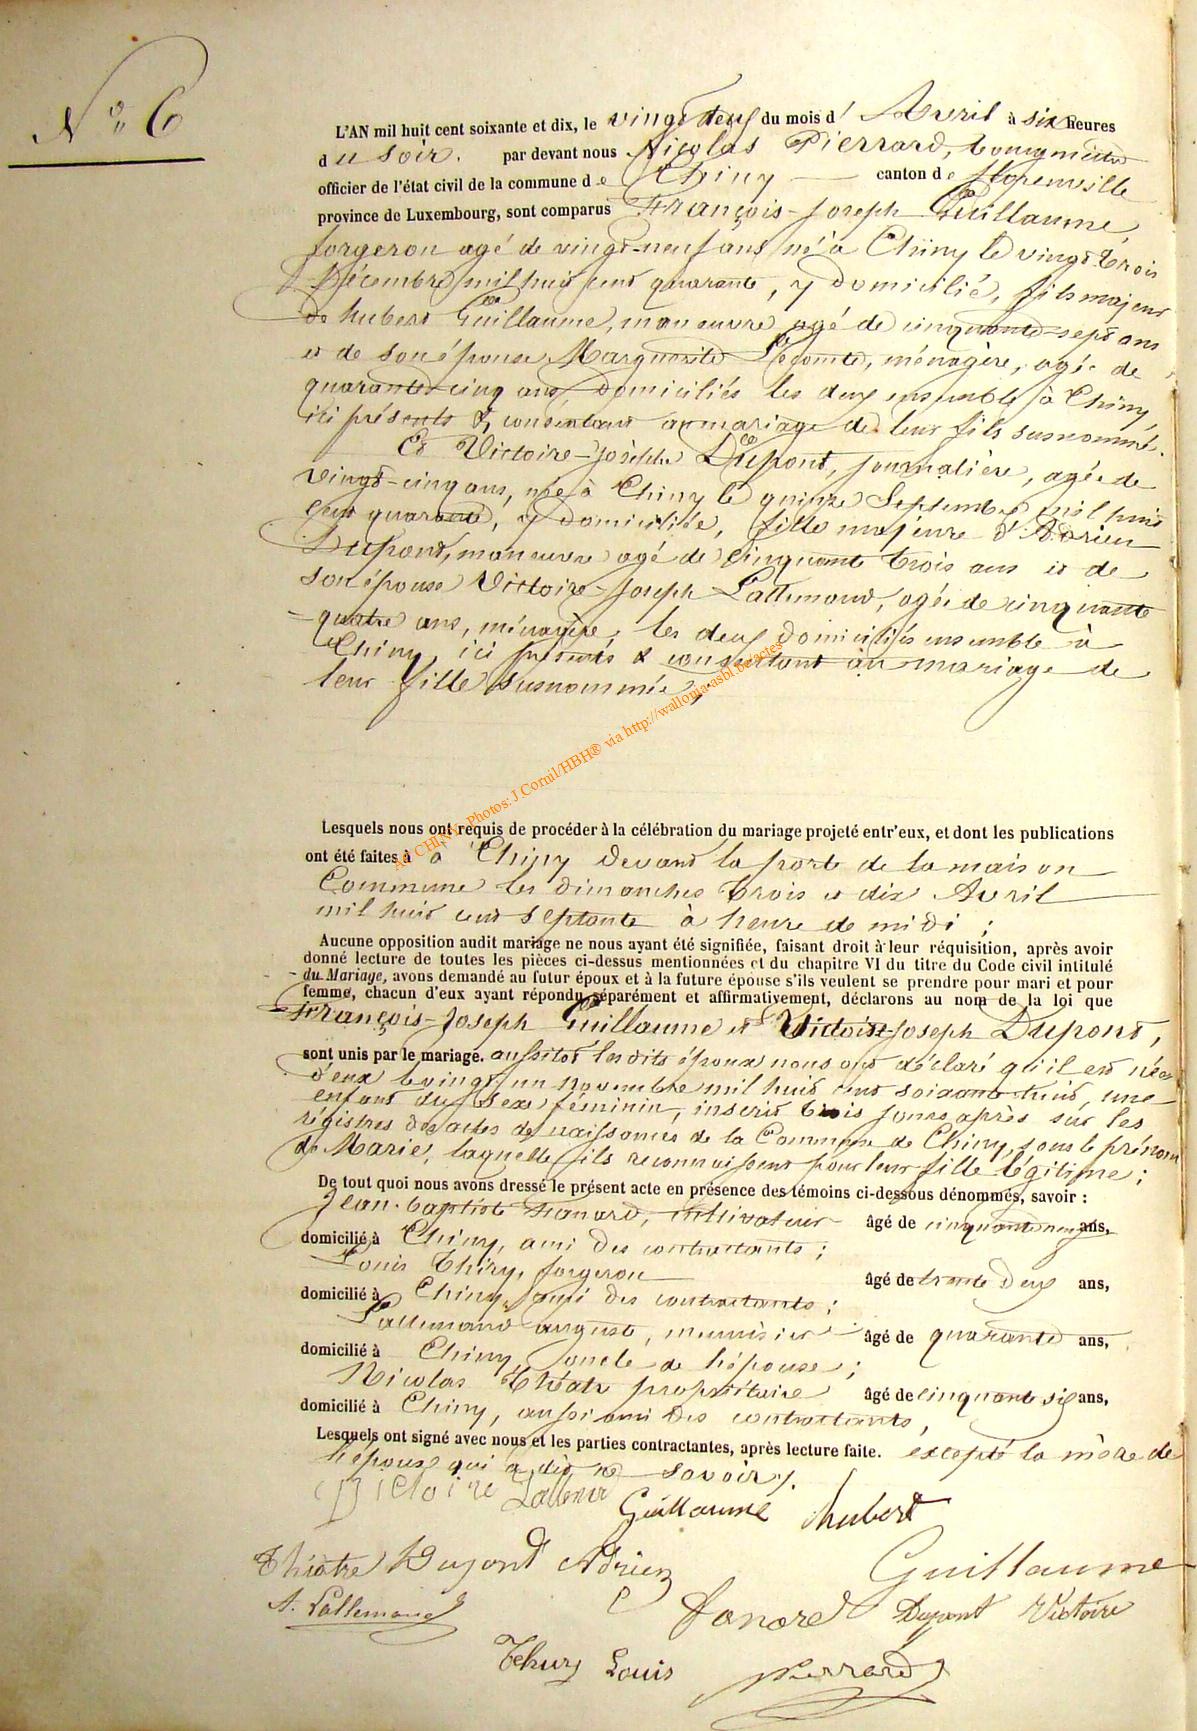 N° 6
L'AN mil huit cent soixante et dix, le vingt neuf du mois d' Avril à six heures
du soir. par devant nous Nicolas Pierrard, bourgmestre
officier de l'état civil de la commune de Chiny canton de Florenville
province de Luxembourg, sont comparus François-Joseph Guillaume,
forgeron agé de vingt-neuf ans né à Chiny le vingt-trois
Décembre mil huit cent quarante, y domicilié, fils majeur
de hubert Guillaume, manœuvre agé de cinquante-sept ans
et de son épouse Marguerite Lecomte, ménagère, agée de
quarante-cinq ans, domiciliés les deux ensemble à Chiny,
ici présents & consentant au mariage de leur fils susnommé.
Et Victoire-Josèphe Dupont, journalière, agée de
vingt-cinq ans, née à Chiny le quinze Septembre mil huit
cent quarante, y domiciliée, fille majeure d'Adrien
Dupont, manœuvre agé de cinquante trois ans et de
son épouse Victoire-Joseph Lallemand, agée de cinquante
-quatre ans, ménagère, les deux domiciliés ensemble à
Chiny, ici présents & consentant au mariage de
leur fille susnommée;
Ac CHINY - Photos: J.Cornil/HBH® via http://wallonia-asbl.be/actes
Lesquels nous ont requis de procéder à la célébration du mariage projeté entr'eux, et dont les publications
ont été faites à à Chiny devant la porte de la maison
Commune les dimanches trois et dix Avril
mil huit cent septante à heure de midi;
Aucune opposition audit mariage ne nous ayant été signifiée, faisant droit à leur réquisition, après avoir
donné lecture de toutes les pièces ci-dessus mentionnées et du chapitre VI du titre du Code civil intitulé
du Mariage, avons demandé au futur époux et à la future épouse s'ils veulent se prendre pour mari et pour
femme, chacun d'eux ayant répondu séparément et affirmativement, déclarons au nom de la loi que
François-Joseph Guillaume et Victoire-Joseph Dupont,
sont unis par le mariage. aussitôt lesdits époux nous ont déclaré qu'il est née
d'eux le vingt un novembre mil huit cent soixante huit, une
enfant du sexe féminin, inscrit trois jours après sur les
régistres des actes de naissances de la Commune de Chiny, sous le prénom
de Marie, laquelle ils reconnaissent pour leur fille légitime;
De tout quoi nous avons dressé le présent acte en présence des témoins ci-dessous dénommés, savoir :
Jean-baptiste hanard, cultivateur âgé de cinquante neuf ans,
domicilié à Chiny, ami des contractants;
Louis Thiry, forgeron âgé de trente deux ans,
domicilié à Chiny, ami des contractants;
Lallemand auguste, menuisier âgé de quarante ans,
domicilié à Chiny, oncle de l'épouse;
Nicolas Théatre propriétaire âgé de cinquante six ans,
domicilié à Chiny, aussi ami des contractants,
Lesquels ont signé avec nous et les parties contractantes, après lecture faite. excepté la mère de
l'épouse qui a dit ne savoir.
Victoire
Guillaume hubert
Théatre Dupont Adrien Guillaume
A. Lallemand hanard Dupont Victoire
Thiry Louis Pierrard